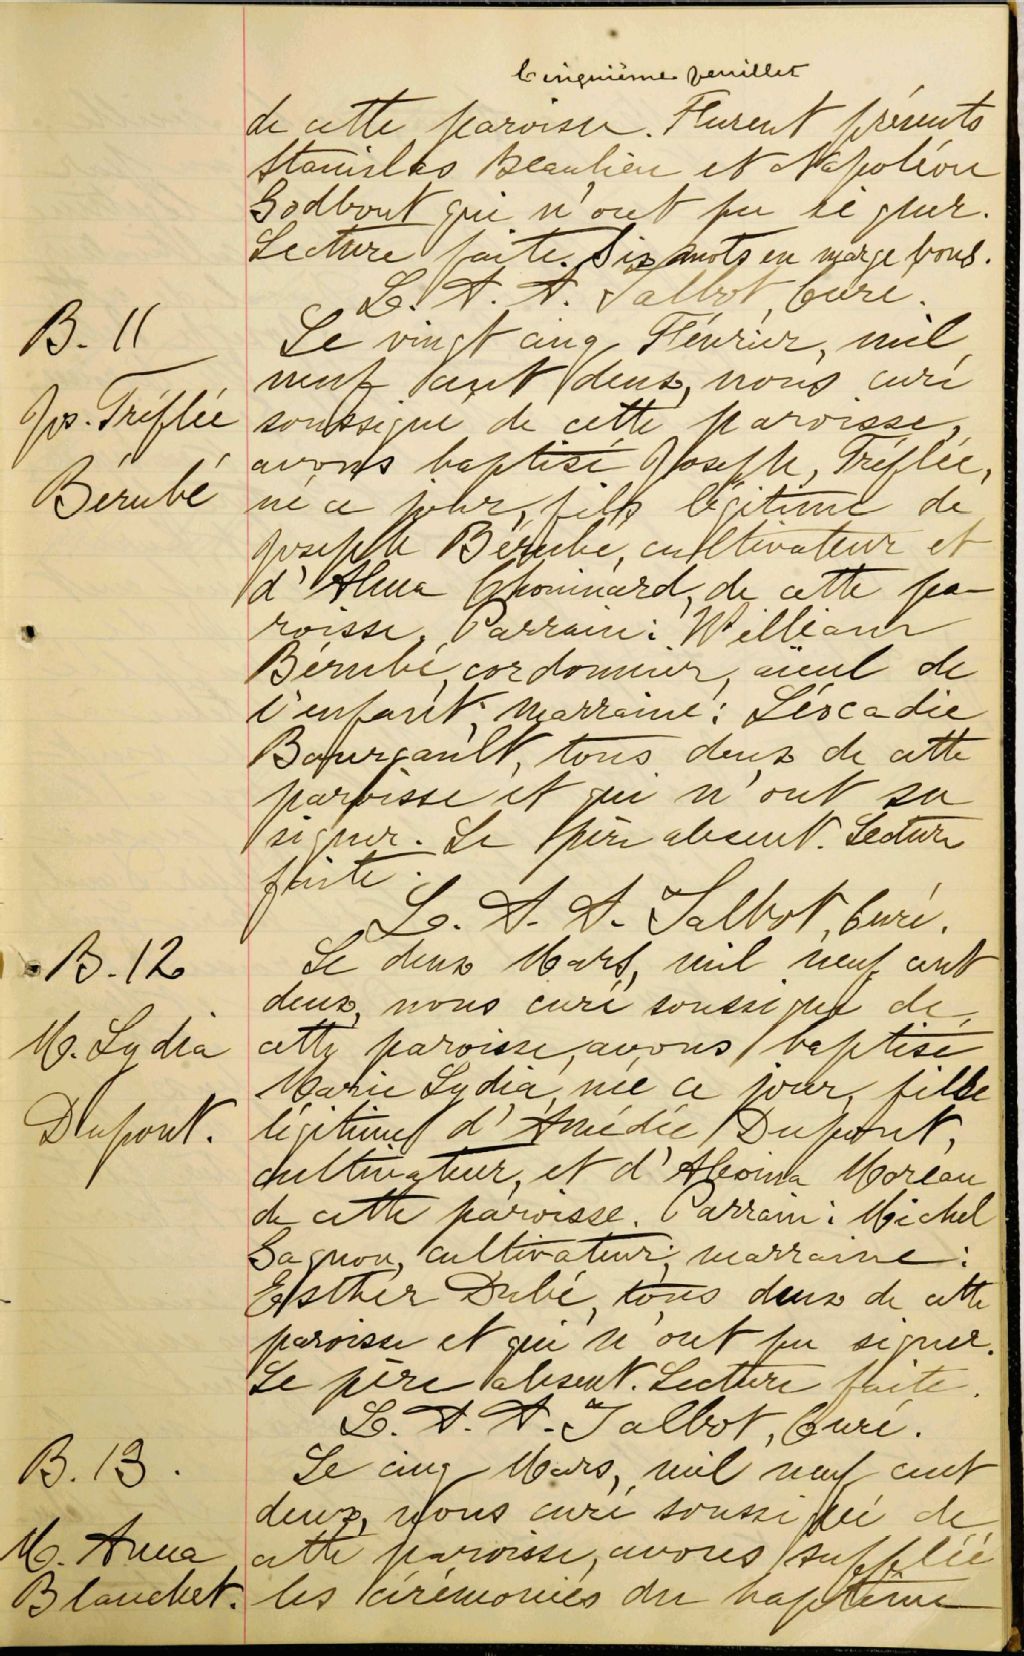 Cinquième feuillet
de cette paroisse. Furent présents
Stanislas Beaulieu et Napoléon
Godbout qui n'ont pu signer.
Lecture faite. Six mots en marge bons.
L. A. A. Talbot, Curé.
B. 11
Jos. Tréflée
Bérubé
Le vingt cinq Février, mil
neuf cent deux, nous curé
soussigné de cette paroisse,
avons baptisé Joseph, Tréflée,
né ce jour, fils légitime de
Joseph Bérubé, cultivateur et
d'Alma Chouinard, de cette pa-
roisse. Parrain: William
Bérubé, cordonnier, aïeul de
l'enfant; marraine: Léocadie
Bourgault, tous deux de cette
paroisse et qui n'ont su
signer. Le père absent. Lecture
faite.
L. A. A. Talbot, Curé.
B. 12
M. Lydia
Dupont.
Le deux Mars, mil neuf cent
deux, nous curé soussigné de
cette paroisse, avons baptisé
Marie Lydia, née ce jour, fille
légitime d'Amédée Dupont,
cultivateur, et d'Moreau
de cette paroisse. Parrain: Michel
Gagnon, cultivateur; marraine:
Esther Dubé, tous deux de cette
paroisse et qui n'ont pu signer.
Le père absent. Lecture faite.
L. A. A. Talbot, Curé.
B. 13.
M. Anna
Blanchet.
Le cinq Mars, mil neuf cent
deux, nous curé soussigné de
cette paroisse, avons suppléé
les cérémonies du baptême